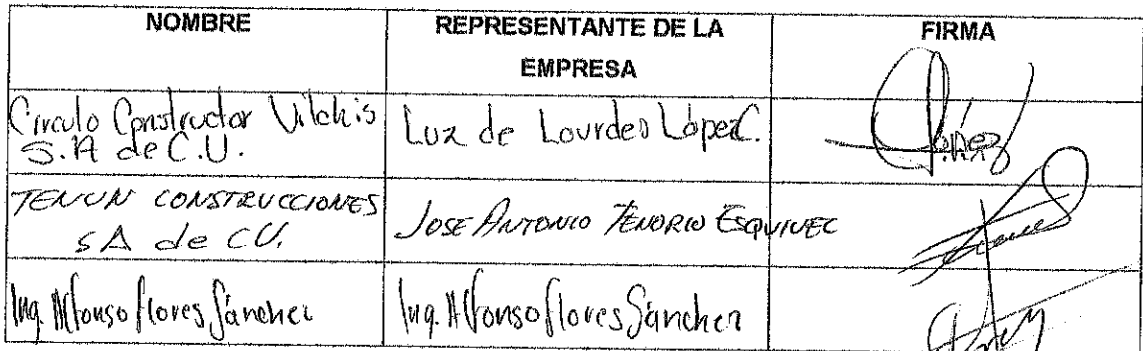 NOMBRE
REPRESENTANTE DE LA
EMPRESA
FIRMA
Circulo Constructor Vilchis
S.A de C.V.
Luz de Lourdes López C.
TENUN CONSTRUCCIONES
SA de CV.
JOSE ANTONIO TENORIO ESQUIVEL
Ing. Alfonso Flores Sánchez
Ing. Alfonso Flores Sánchez